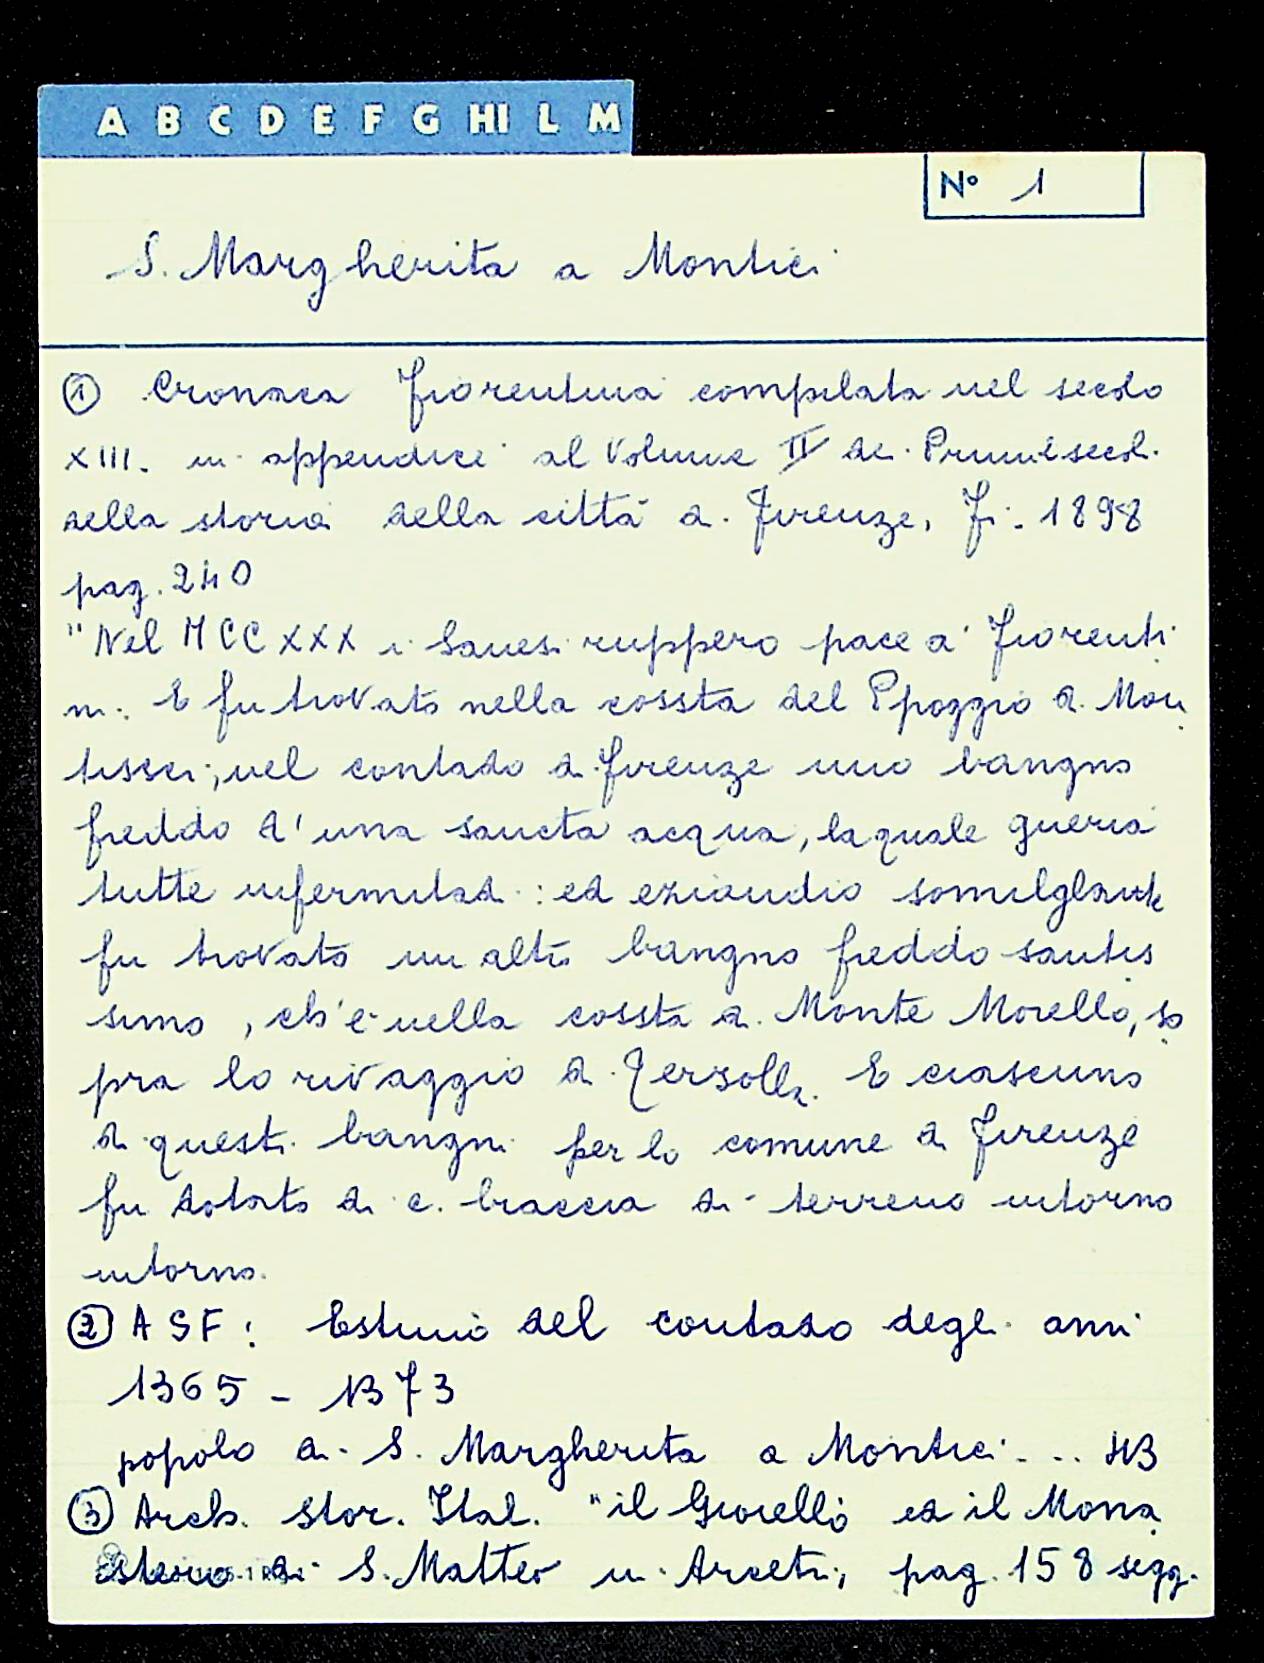 A B C D E F G HI L M
N° 1
S. Margherita a Montici
① Cronaca fiorentina compilata nel secolo
XIII. in appendice al Volume II dei Primi secoli
della storia della città di Firenze, Fi. 1898
pag. 240
"Nel MCCXXX i Sanesi ruppero pace a' fiorenti
ni. E fu trovato nella cossta del Ppoggio di Mon
tisci, nel contado di firenze uno bangno
freddo d'una sancta acqua, la quale gueria
tutte infermitadi: ed eziandio somilglante
fu trovato un altro bangno freddo santis
simo, ch'è nella cossta di Monte Morello, so
pra lo rivaggio di Terzolla. E ciascuno
di questi bangni per lo comune di firenze
fu dotato di c. braccia di terreno intorno
intorno.
② ASF: Estimo del contado degli anni
1365 - 1373
popolo di S. Margherita a Montici ... 43
③ Arch. Stor. Ital. "il Gioiello ed il Mona
stero di S. Matteo in Arcetri, pag. 158 segg.